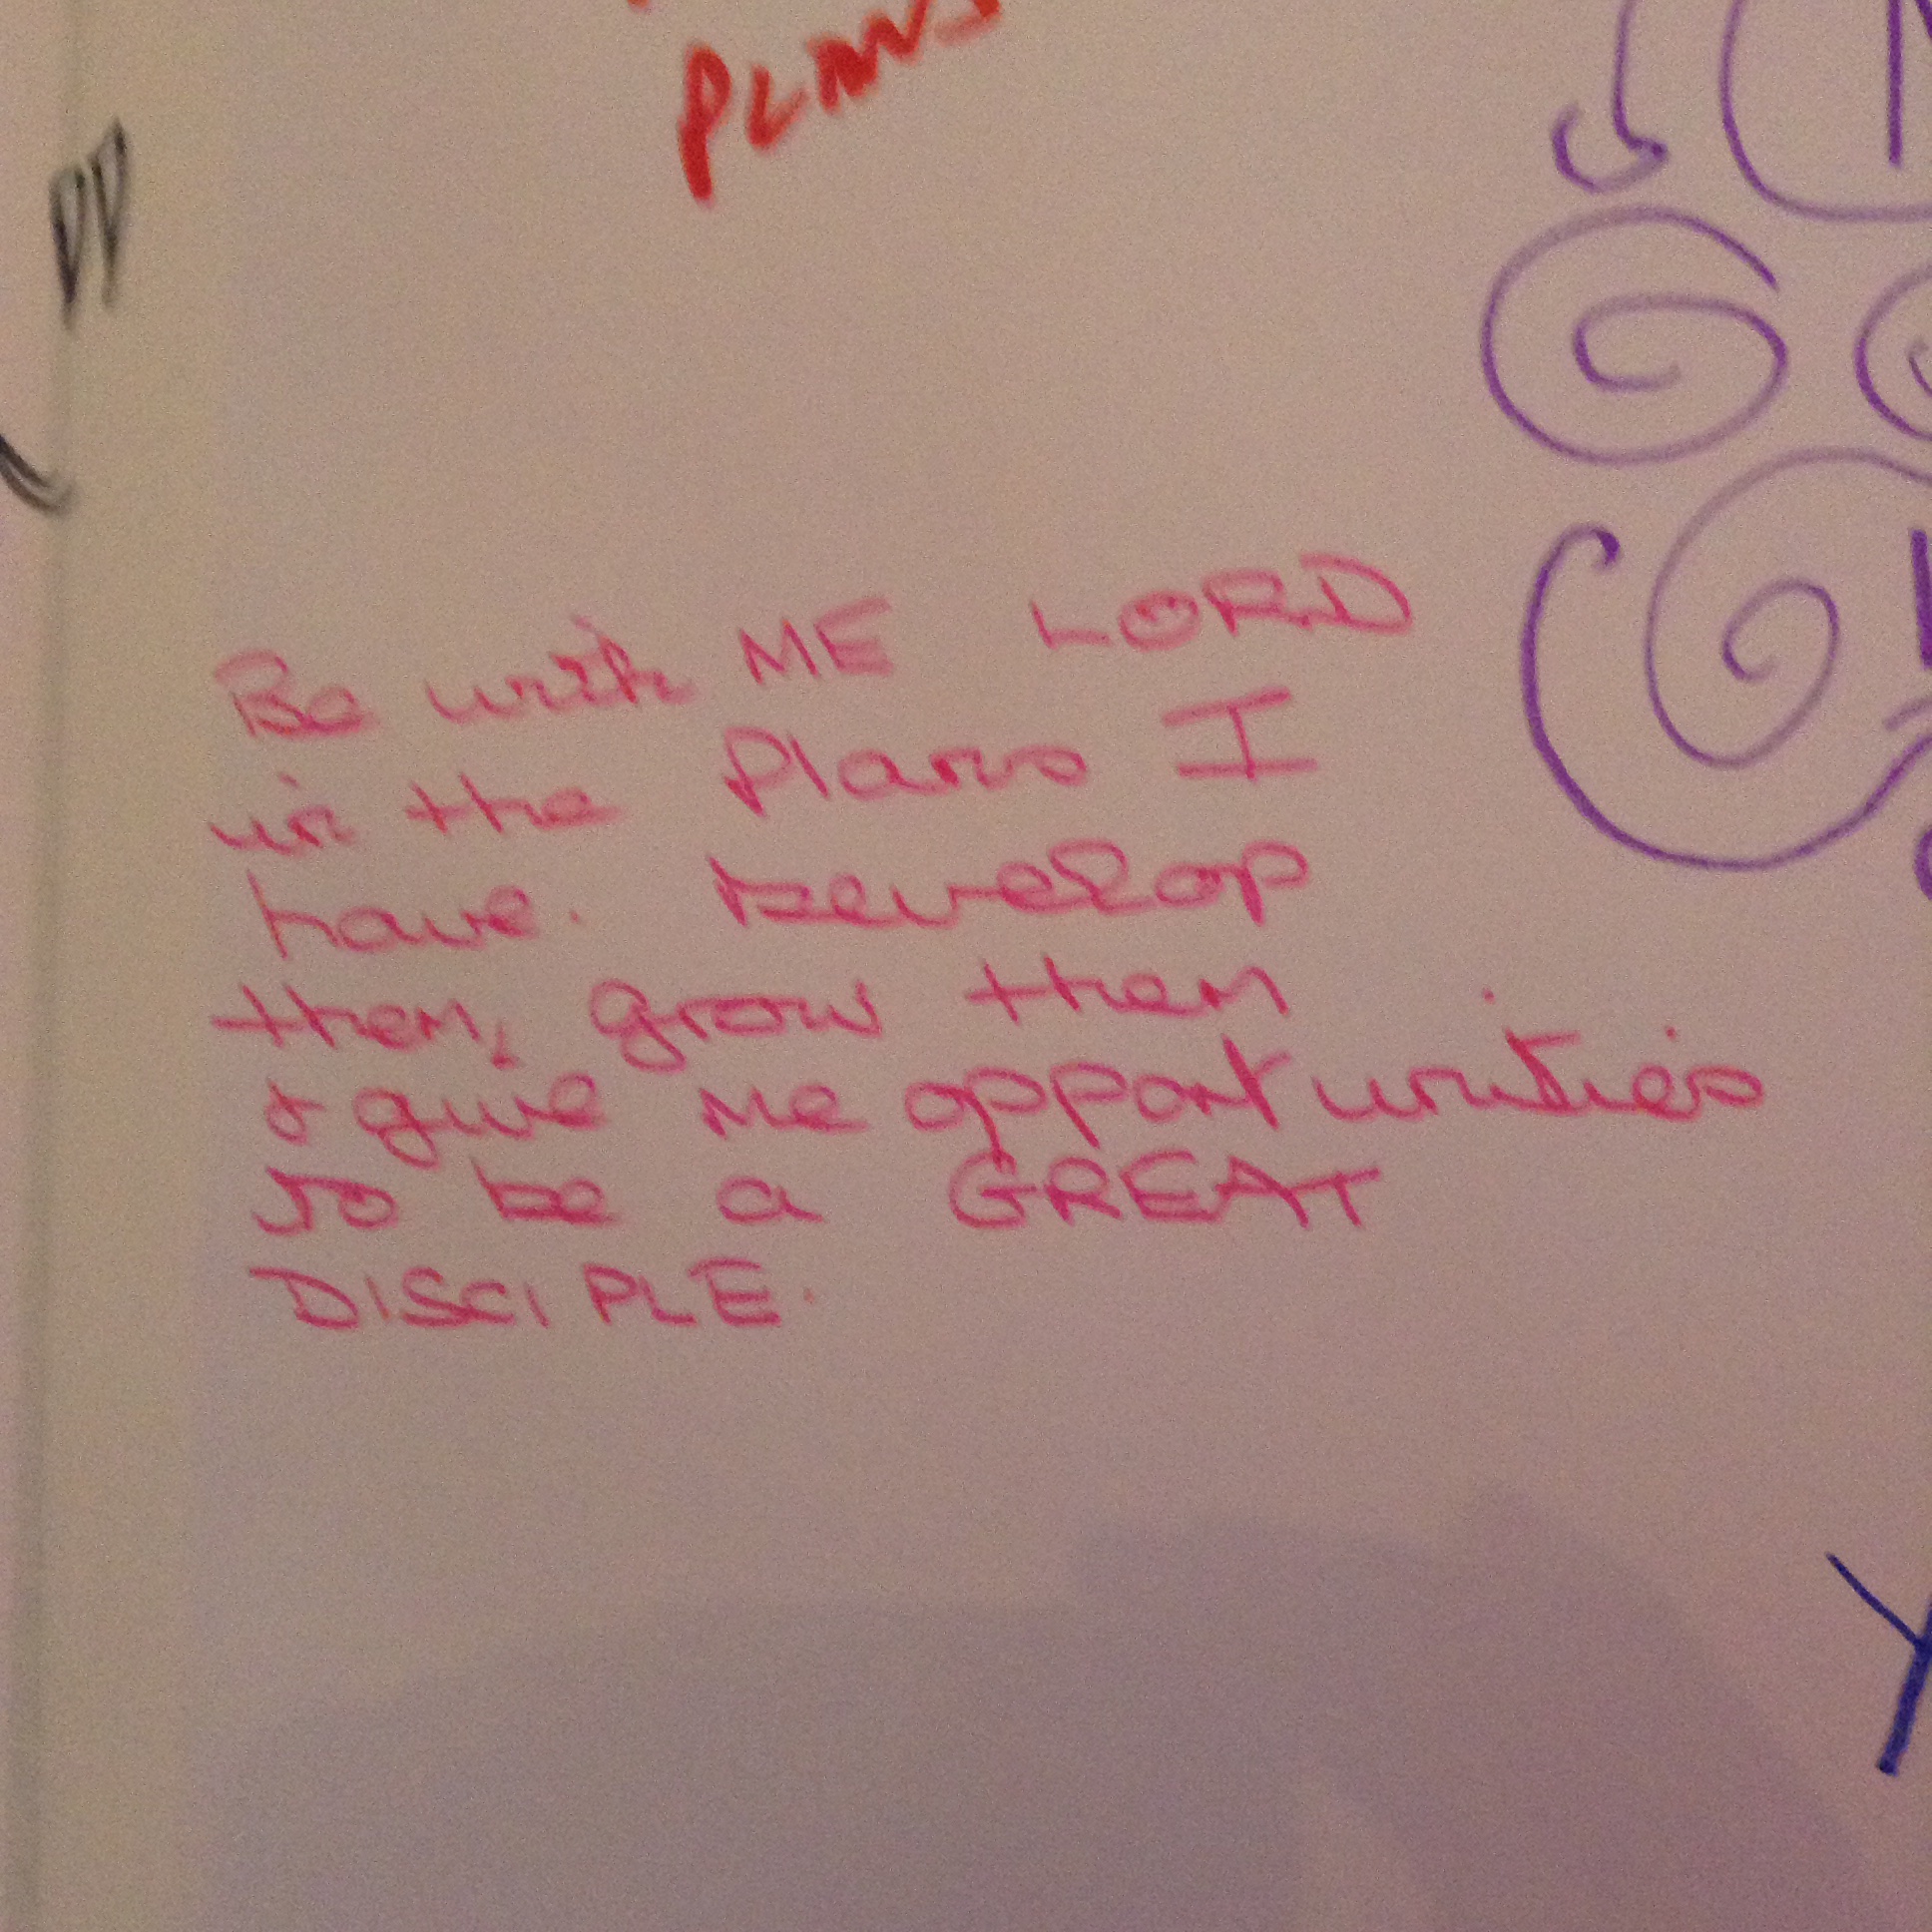 PLANS
Be with ME LORD
in the Plans I
have. Develop
them, grow them
& give me opportunities
to be a GREAT
DISCIPLE.
Y